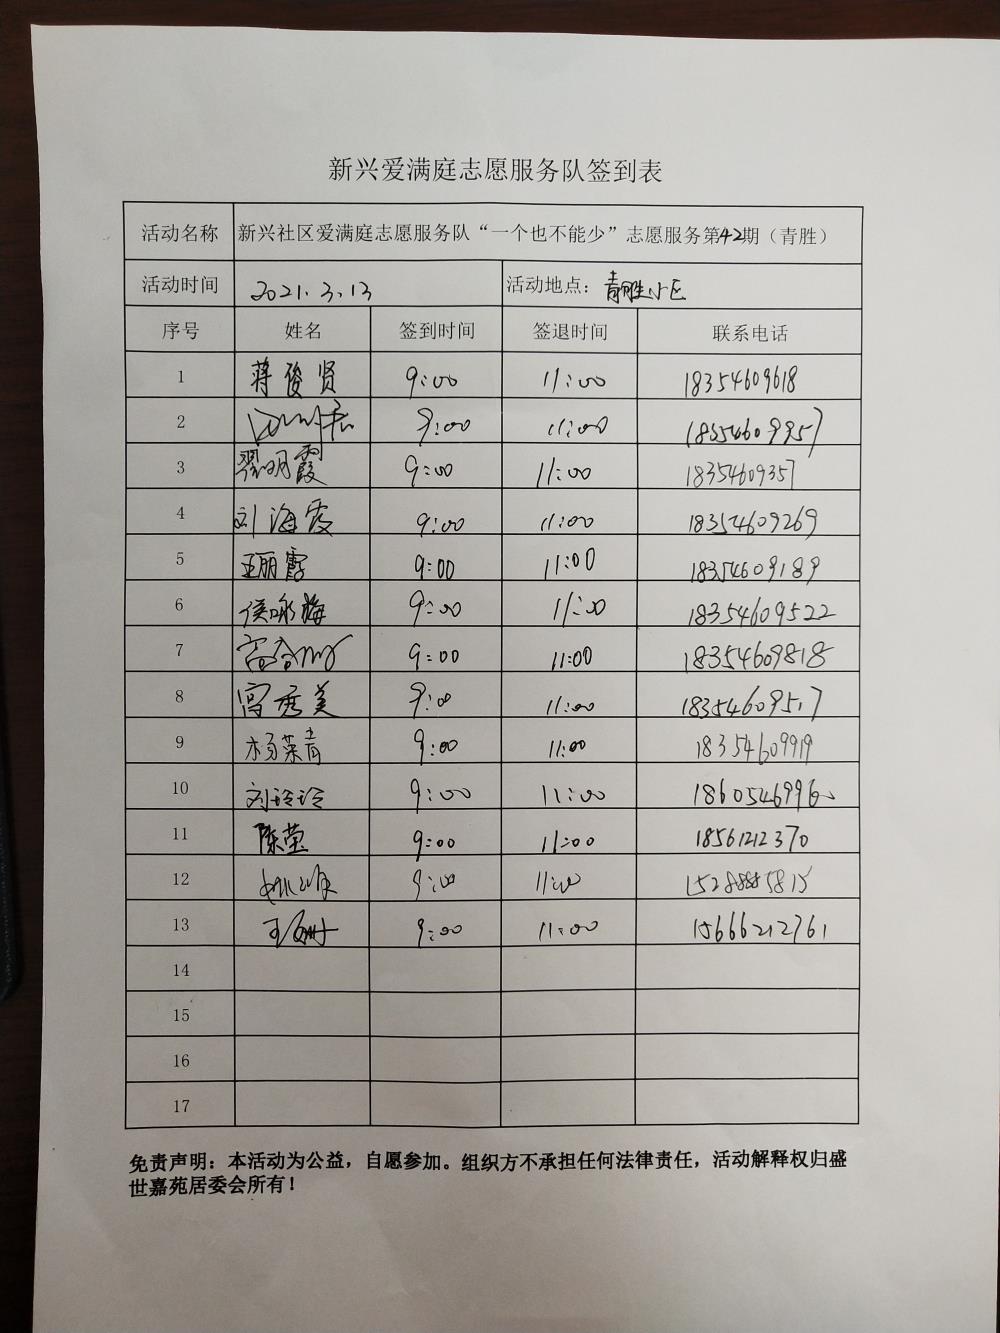 新兴爱满庭志愿服务队签到表
活动名称 新兴社区爱满庭志愿服务队“一个也不能少”志愿服务第42期（青胜）
活动时间 2021.3.13 活动地点：青胜小区
序号 姓名 签到时间 签退时间 联系电话
1 蒋俊贤 9:00 11:00 18354609618
2 9:00 11:00 18354609957
3 翟明霞 9:00 11:00 18354609357
4 刘海霞 9:00 11:00 18354609269
5 王丽霞 9:00 11:00 18354609189
6 侯咏梅 9:00 11:00 18354609522
7 9:00 11:00 18354609818
8 宫秀美 9:00 11:00 18354609517
9 杨荣青 9:00 11:00 18354609919
10 刘玲玲 9:00 11:00 18605469960
11 陈莹 9:00 11:00 18561212370
12 9:00 11:00
13 王珊 9:00 11:00 15666212761
14
15
16
17
免责声明：本活动为公益，自愿参加。组织方不承担任何法律责任，活动解释权归盛
世嘉苑居委会所有！